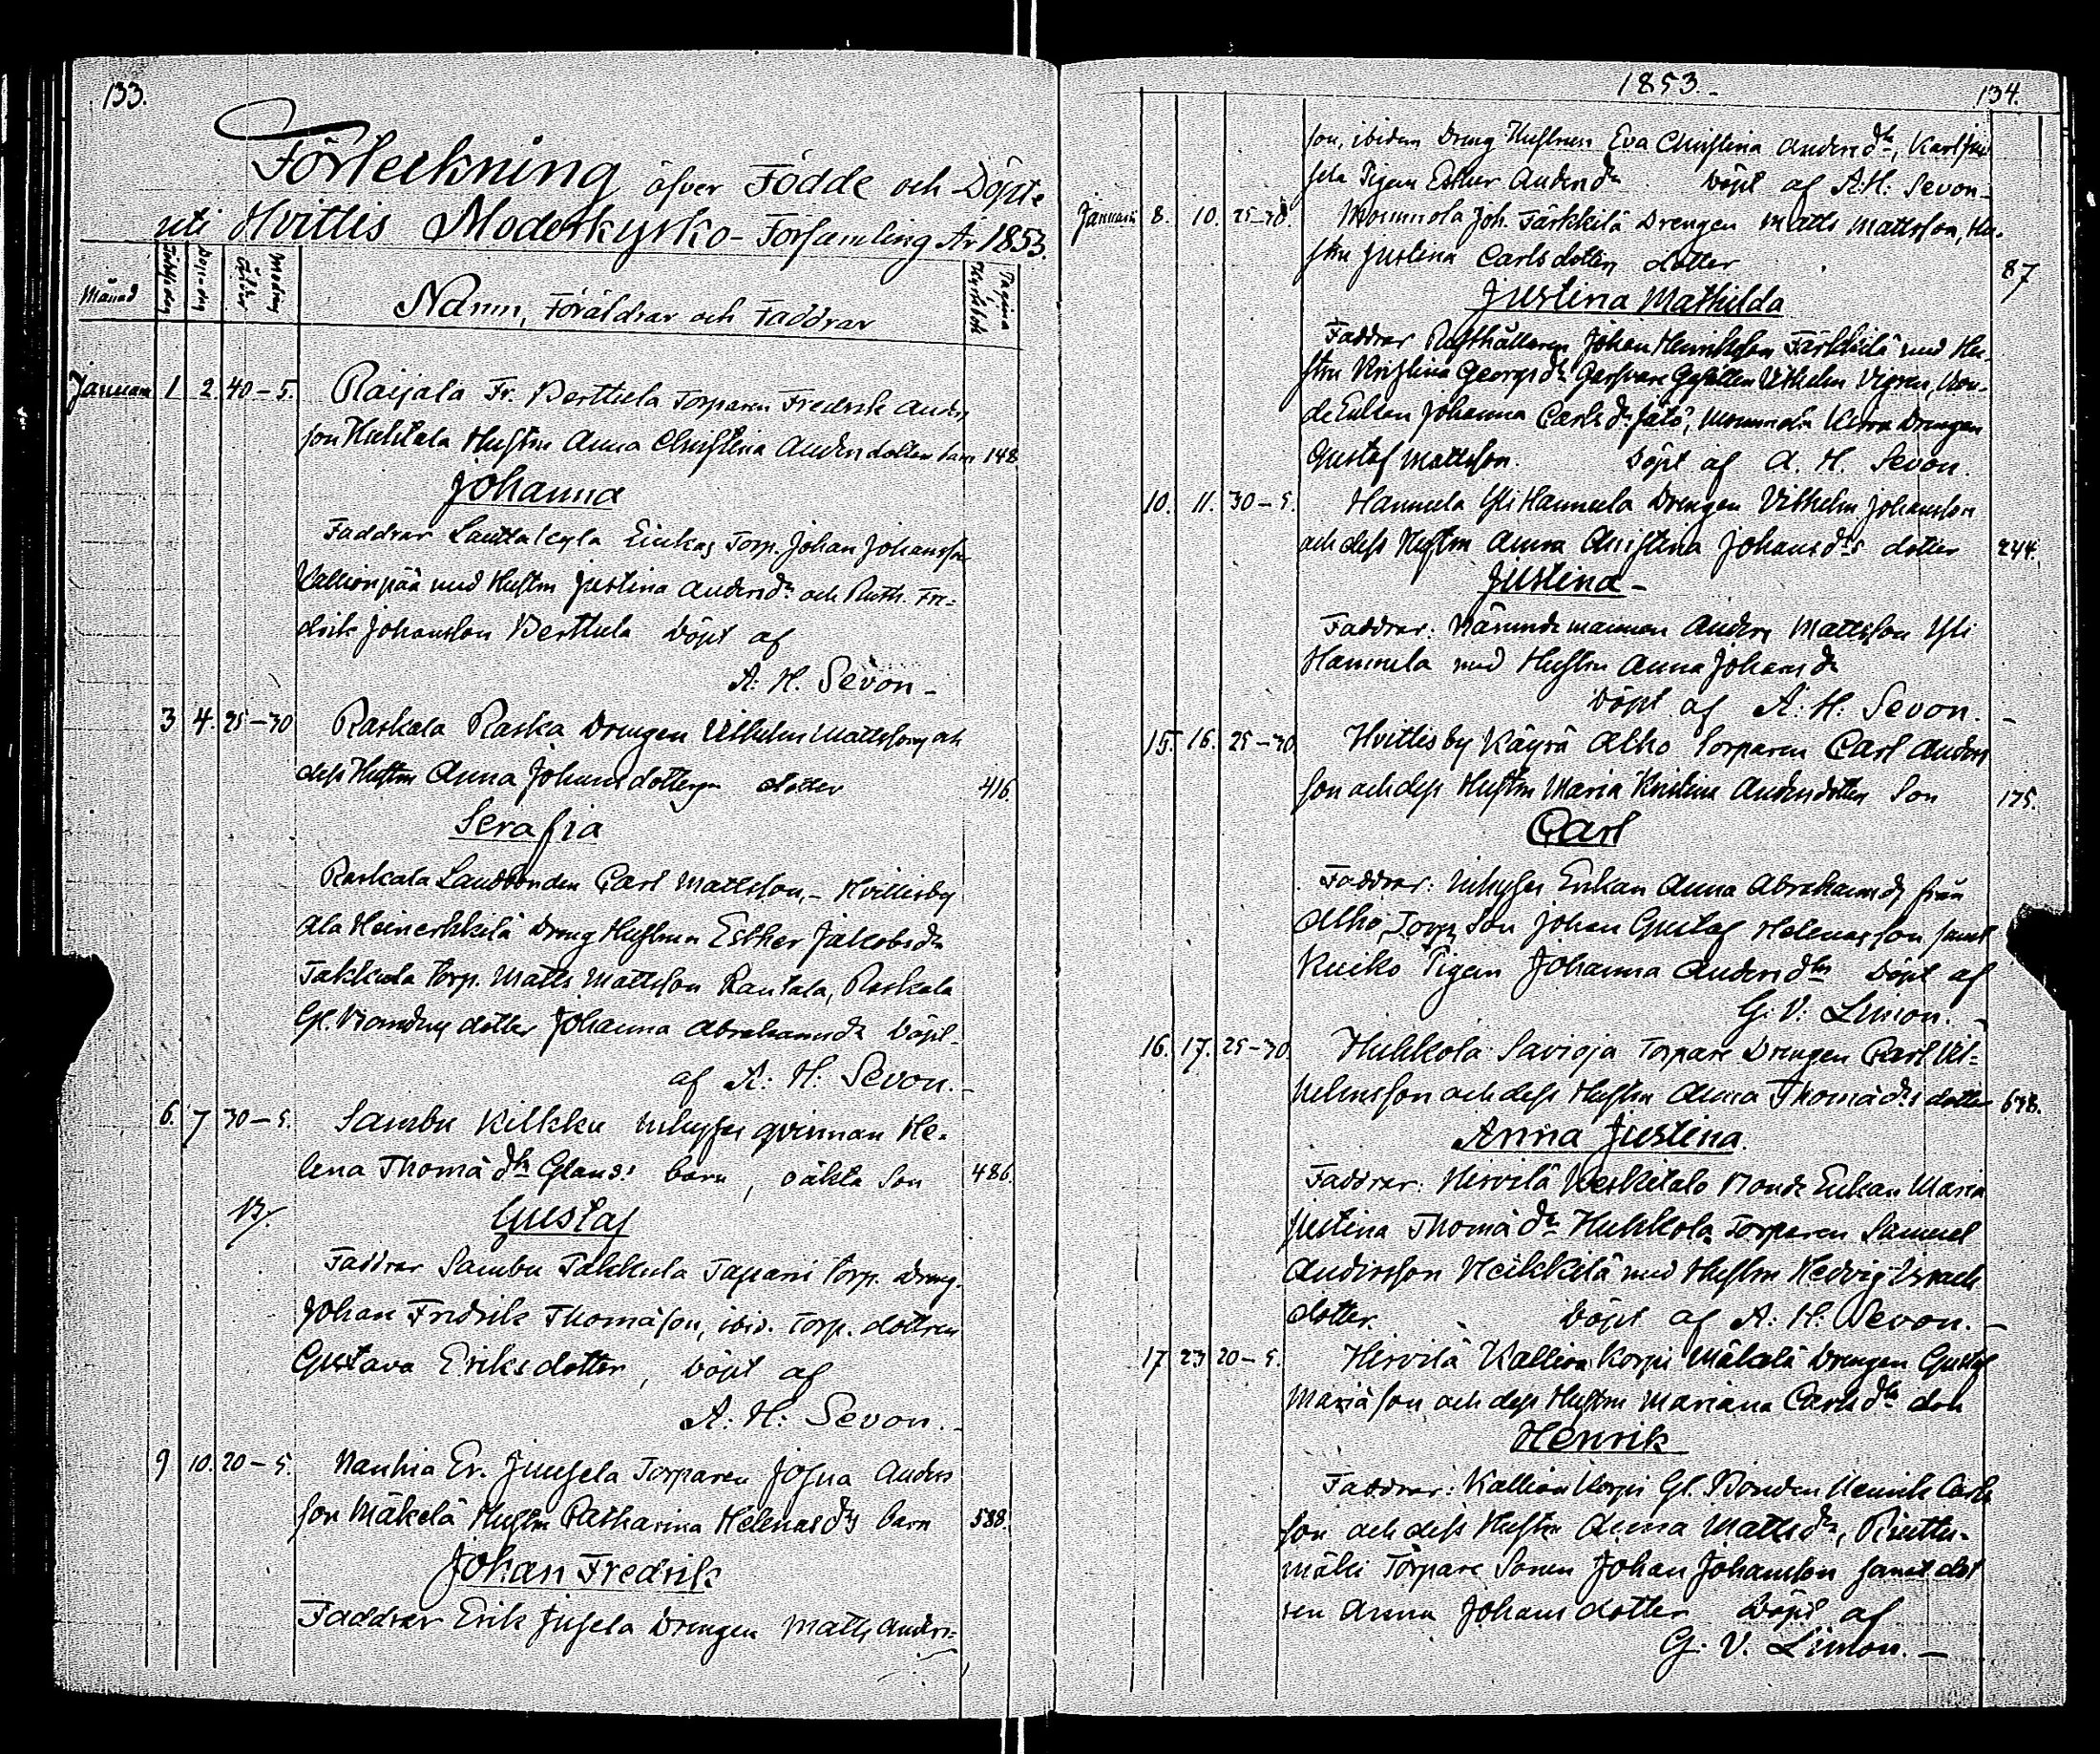 133.
Förteckning öfver Födde och Döpte
uti Hvittis Moderkyrko-Församling År 1853.
Månad Födelsedag Döpe-dag Modrens Ålder Namn, Föräldrar och Faddrar Pagina i Kyrkob.
Januari 1 2. 40-5. Raijala Fr. Perttula Torparen Fredrik Anders
son Huhtala Hustru Anna Christina Andersdotters barn 148
Johanna
Faddrar Lauttakylä Torp. Johan Johansson
Kallionpää med Hustru Justina Andersdr och Rusth. Fre-
drik Johansson Perttula Döpt af
A. H. Sevon-
3 4. 25-30 Raskala Raska Drengen Vilhelm Mattsson och
dess Hustru Anna Johansdotters dotter 416.
Serafia
Raskala Landbonden Carl Mattsson,- Hvittisby
Ala Heinerkkilä Dreng Hustrun Esther Jakobsdr
Takkula Torp. Matts Mattsson Rautala, Raskala
Gl. Bondens dotter Johanna Abrahamsdr Döpt-
af A: H: Sevon.-
6. 7 30-5. Sambu Kilkku Inhyses qvinnan He-
lena Thomädtr Glans: barn, oäkta Son 486.
Gustaf
Faddrar Sambu Takkula Tapani Torp. Dreng.
Johan Fredrik Thomäson, ibid. Torp. dottren
Gustava Eriksdotter, Döpt af
A: H: Sevon.-
9 10. 20-5. Nanhia Er. Juusela Torparen Josua Anders
son Mäkelä Hustru Catharina Helenasdrs barn 588.
Johan Fredrik
Faddrar Erik Jusela Drengen Matts Anders-
1853.-
134.
son, ibidem Dreng Hustrun Eva Christina Andersdtr,
Pigan Esther Andersdr Döpt af A:H: Sevon-
Januari 8. 10. 25-30. Mommola Joh. Färkkilä Drengen Matts Mattsson, Hu-
stru Justina Carlsdotters dotter 87
Justina Mathilda
Faddrar Rusthållaren Johan Henriksson Färkkilä med Hu-
stru Kristina Georgsdr Garfvare Gesällen Vilhelm Vigren, Bon-
de Enkan Johanna Carlsdr Jätö, Mommola Drengen
Gustaf Mattsson. Döpt af A. H. Sevon.
10. 11. 30-5. Hannula Yli Hannula Drengen Vilhelm Johansson
och dess Hustru Anna Christina Johansdrs dotter 244.
Justina-
Faddrar: Nämndemannen Anders Mattsson Yli
Hannula med Hustru Anna Johansdr
Döpt af A: H: Sevon.-
15. 16. 25-30. Hvittisby Käyrä Alho Torparen Carl Anders
son och dess Hustru Maria Kristina Andersdotters Son 175.
Carl
Faddrar: Inhyses Enkan Anna Abrahamsdr från
Alho, Torp. Son Johan Gustaf Helenasson samt
Kuiko Pigan Johanna Andersdtr Döpt af
G: V: Limon.-
16. 17. 25-30. Huhkola Savioja Torpare Drengen Carl Vil-
helmsson och dess Hustru Anna Thomädrs dotter 648.
Anna Justina.
Faddrar: Hirvilä Keskitalo Bonde Enkan Maria
Justina Thomädr Huhkola Torparen Samuel
Andersson Heikkilä med Hustru Hedvig Israels
dotter. Döpt af A: H: Sevon.-
17 23 20-5. Hirvilä Kallionkorpi Mäkelä Drengen Gustaf
Mariäson och dess Hustru Mariana Carlsdtr
Henrik
Faddrar: Kallionkorpi Gl. Bonden Henrik Carls
son och dess Hustru Anna Mattsdr,
mäki Torpare Sonen Johan Johansson samt dot
ren Anna Johansdotter Döpt af
G. V. Limon.-